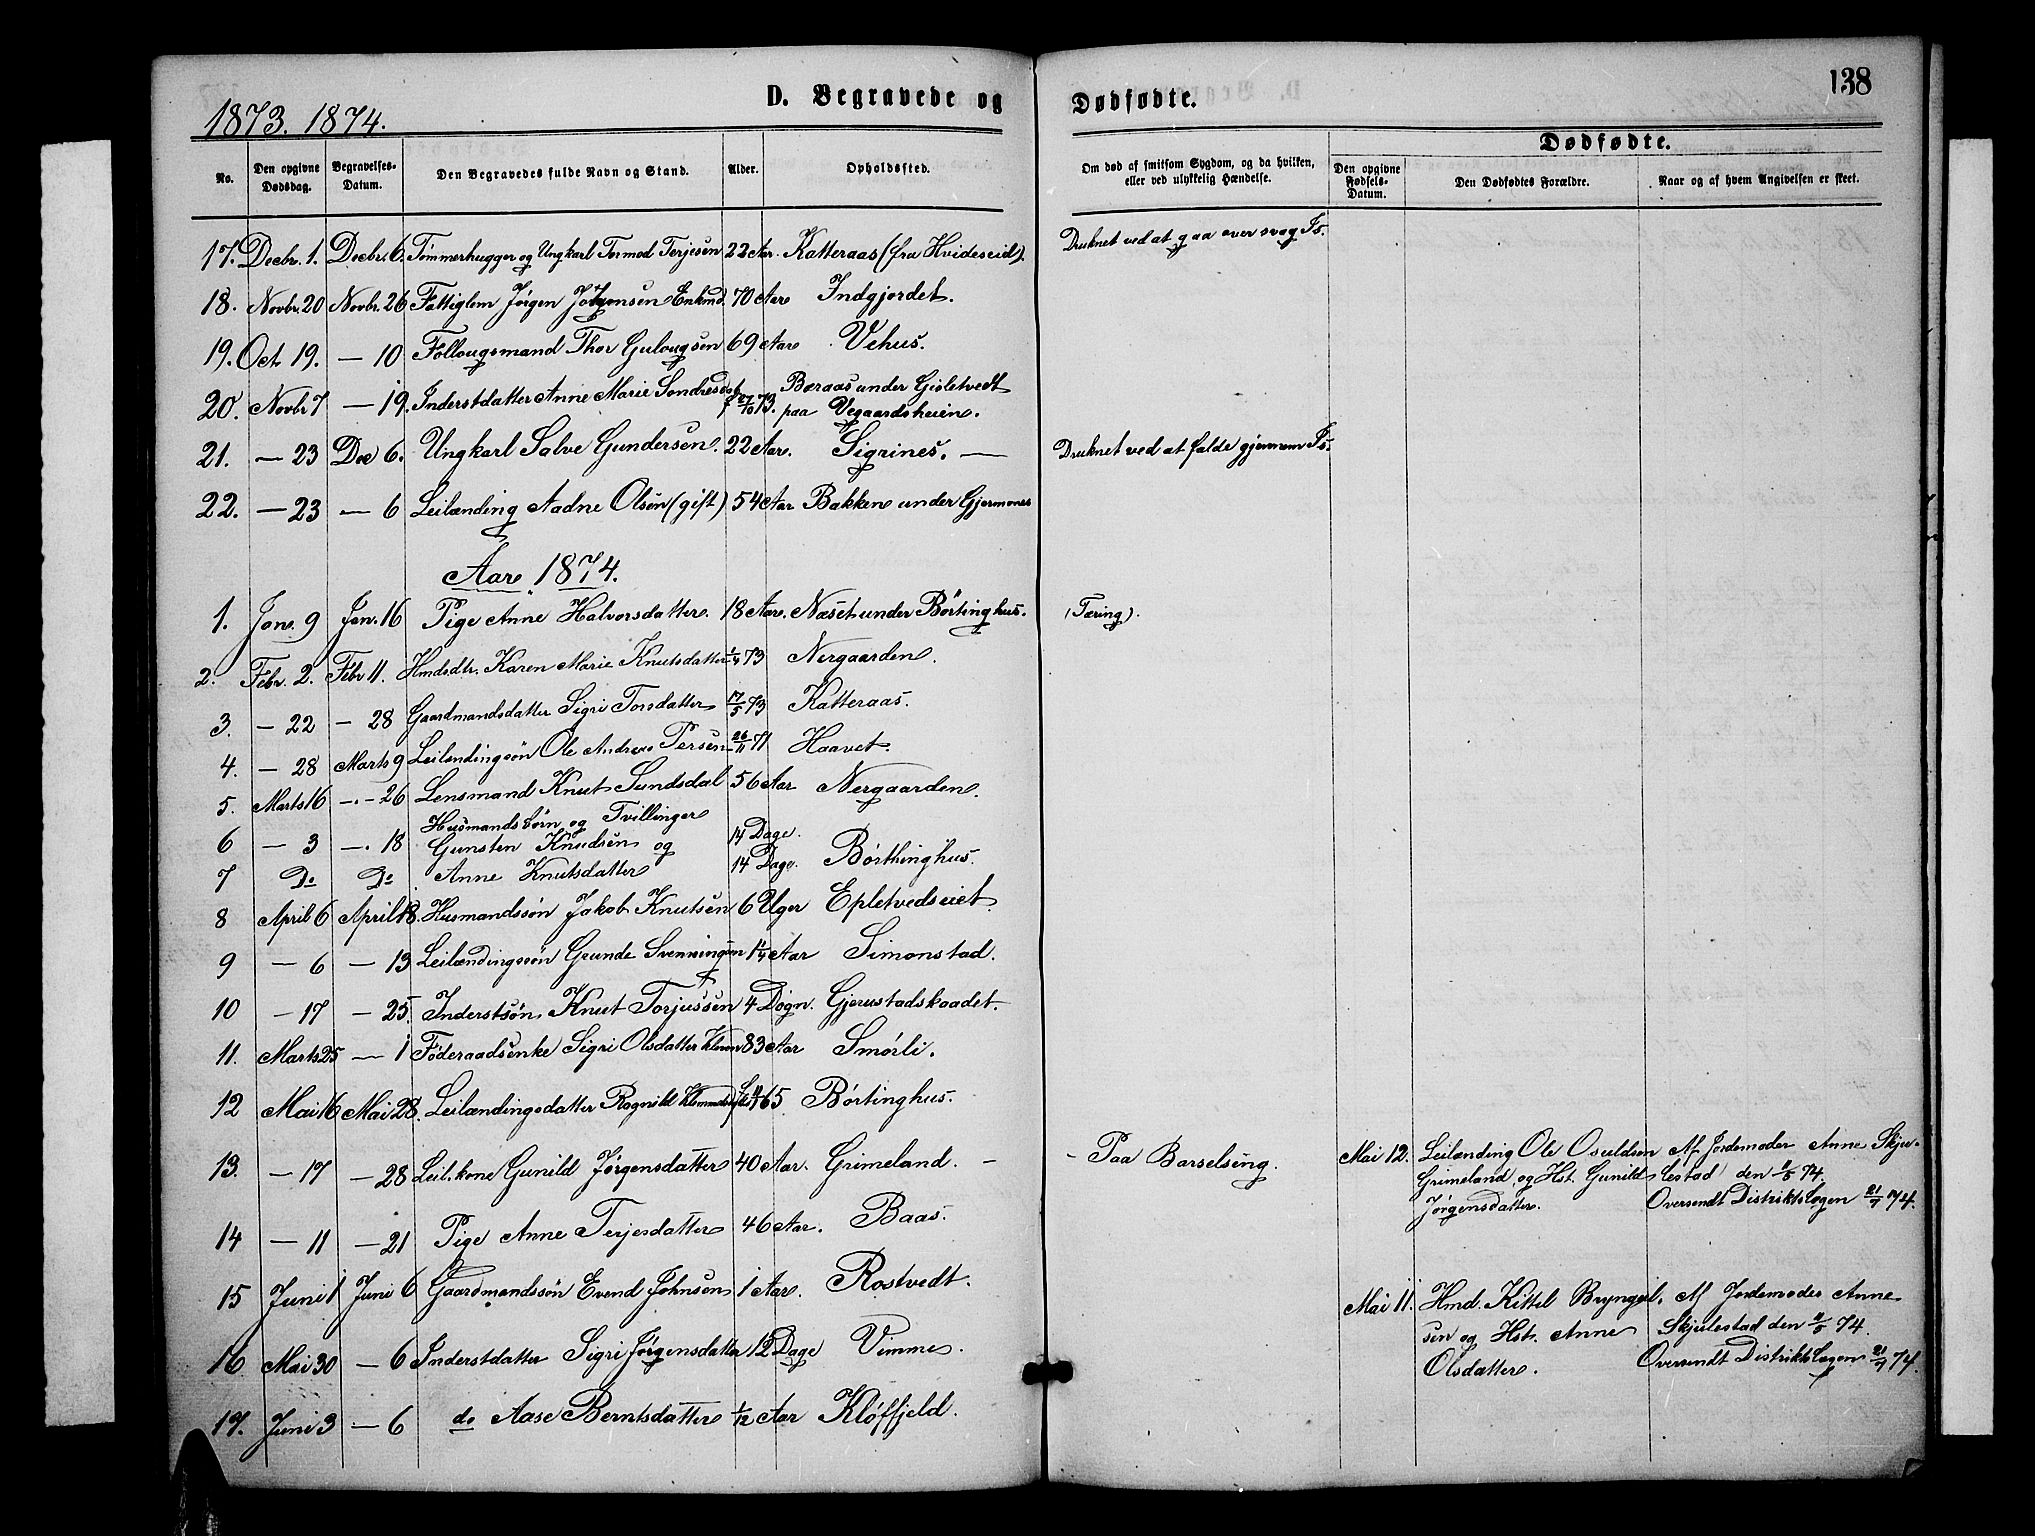 138
1873. 1874.
D. Begravede og Dødfødte.
Dødfødte.
No.
Den opgivne Dødsdag.
Begravelses-Datum.
Den Begravedes fulde Navn og Stand.
Alder.
Opholdssted.
Om død af smitsom Sygdom, og da hvilken, eller ved ulykkelig Hændelse.
Den opgivne Fødsels-Datum.
Den Dødfødtes Forældre.
Naar og af hvem Angivelsen er skeet.
17. Decbr. 1. Decbr. 6. Tømmerhugger og Ungkarl Tormod Terjesen 22 Aar. Katteraas (fra Hvideseid). Druknet ved at gaa over svag Is.
18. Novbr. 20 Novbr. 26 Fattiglem Jørgen Jørgensen Enkmd. 70 Aar Indgjordet.
19. Oct. 19. — 10 Follougsmand Thor Gulougsen 69 Aar Vehus.
20. Novbr 7 — 19. Inderstdatter Anne Marie Sondresdat f 27/10 73. Beraas under Gisletvedt
paa Vegaardsheien.
21. — 23 Dec 6. Ungkarl Salve Gundersen. 22 Aar. Sigrines. — Druknet ved at falde gjennem Is.
22. — 23 — 6 Leilænding Aadne Olsen (gift) 54 Aar Bakken under Gjermones
Aar 1874.
1. Jan. 9 Jan. 16 Pige Anne Halvorsdatter. 18 Aar. Næset under Børtinghus. (Tæring).
2. Febr. 2. Febr 11. Hmdsdtr. Karen Marie Knutsdatter 1/4 73 Nergaarden.
3. — 22 — 28 Gaardmandsdatter Sigri Torsdatter 17/5 73 Katteraas.
4. — 28 Marts 9 Leilændingsøn Ole Andreas Persen 26/11 71 Haavet.
5. Marts 16 — 26 Lensmand Knut Sundsdal 56 Aar Nergaarden.
Husmandsbørn og Tvillinger
6 — 3 — 18 Gunsten Knudsen og 14 Dage.
7 Do Do Anne Knutsdatter 14 Dage. Børthinghus.
8 April 6 April 18. Husmandssøn Jakob Knutsen 6 Uger Epletvedseiet.
9 — 6 — 13 Leilændingssøn Grunde Svenningsen 1/4 Aar Simonstad.
10 — 17 — 25. Inderstsøn Knut Torjussen 4 Døgn. Gjerustadskaadet.
11. Marts 25 — 1 Føderaadsenke Sigri Olsdatter Kleven 83 Aar Smørli.
12 Mai 16 Mai 28. Leilændingsdatter Ragnild 65 Børtinghus.
13. — 17 — 28 Leil.kone Gunild Jørgensdatter 40 Aar. Grimeland. — - Paa Barselseng. Mai 12. Leilænding Ole Osuldsen Af Jordemoder Anne Skju-
Grimeland og Hst. Gunild lestad den /5 74.
Jørgensdatter. Oversendt Distriktslægen 21/7 74.
14 — 11 — 21 Pige Anne Terjesdatter 46 Aar. Baas.
15 Juni 1 Juni 6 Gaardmandssøn Evend Johnsen 1 Aar. Rostvedt. Mai 11. Hmd. Kittel Bryngil- Af Jordemoder Anne
sen og Hstr. Anne Skjulestad den /5 74.
Olsdatter. Oversendt Distriktslægen 21/7 74.
16 Mai 30 — 6 Inderstdatter Sigri Jørgensdatter 12 Dage Vimme.
17. Juni 3 — 6 do Aase Berntsdatter 1/12 Aar Kløffjeld.